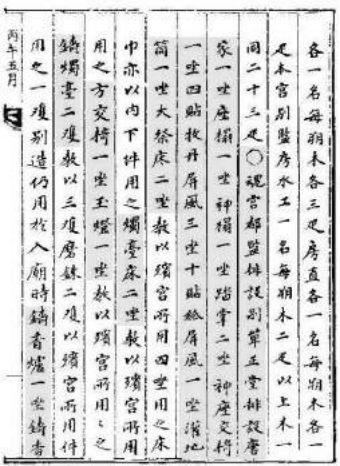 各一名每朔木各三疋房直各一名每朔木各一
疋本宮別監房水工一名每朔木二疋以上木一
同二十三疋○魂宮都監排設別單正堂排設唐
家一坐座榻一坐神榻一坐踏掌二坐神座交椅
一坐四貼牧丹屛風三坐十貼紙屛風一坐滿地
筒一坐大祭床二坐敎以殯宮所用四坐用之床
巾亦以內下件用之燭臺床二坐敎以殯宮所用
用之方交椅一坐玉燈一坐敎以殯宮所用々之
鑄燭臺二雙敎以三雙磨鍊二雙以殯宮所用件
用之一雙別造仍用於入廟時鑄香爐一坐鑄香
丙午五月